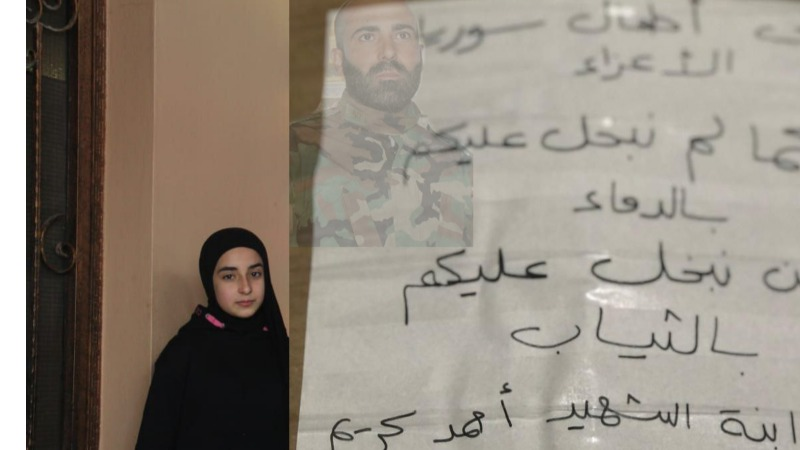 أطفال سوريا
الأعزاء
لم نبخل عليكم
بالدماء
نبخل عليكم
بالثياب
ابنة الشهيد أحمد كريم